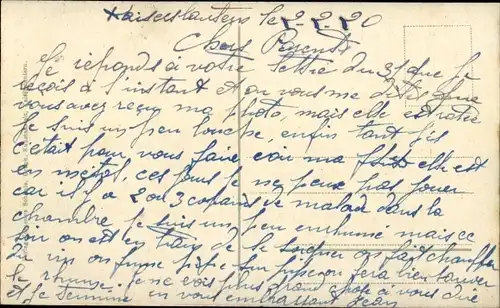 Kaiserslautern le 2.2.20
Chers Parents
Je réponds à votre lettre du 31 que je
reçois à l'instant et ou vous me dites que
vous avez reçu ma photo, mais elle est
je suis un peu louche, enfin tant pis
c'était pour vous faire voir ma elle est
en métal, ces jours je ne peux pas jouer
car il y a 2 ou 3 copains de malade dans la
chambre, je suis un peu enrhumé mais ce
soir on est en train de le soigner on fait chauffer
du vin on fume pipe sur pipe on fera bien
le rhume. Je ne vois plus grand chose à vous dire
et je termine en vous embrassant Jean